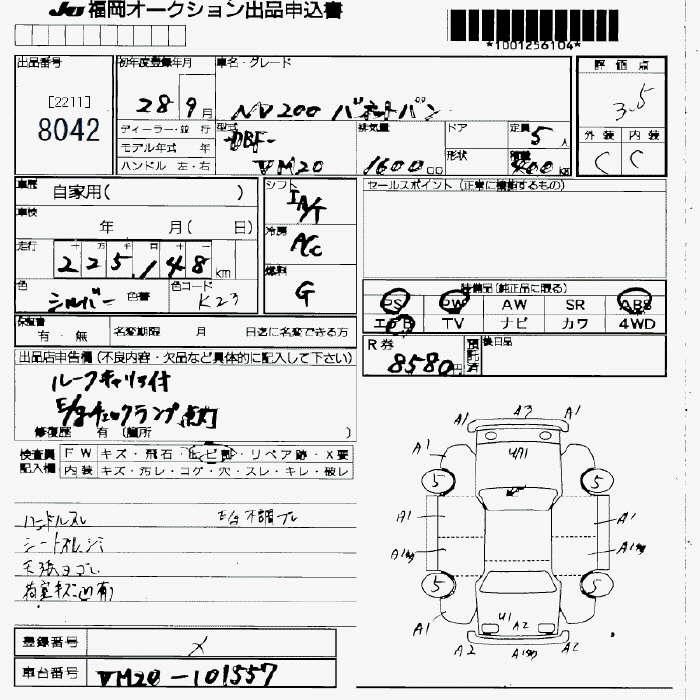 JU 福岡オークション出品申込書
*1001256104*
出品番号
[2211]
8042
初年度登録年月
28 9月
車名・グレード
NV200 バネットバン
ディーラー・並 行
モデル年式 年
ハンドル 左・右
型式
DBF-
VM20
排気量
1600cc
ドア
形状
定員
5人
積載
400kg
評価点
3.5
外装 内装
C C
車歴
自家用( )
車検
年 月( 日)
走行
225,148km
色
シルバー 色番
色コード
K23
シフト
IA/T
冷房
A/C
燃料
G
セールスポイント (正常に機能するもの)
装備品(純正品に限る)
PS PW AW SR ABS
エアB TV ナビ カワ 4WD
保証書
有・無
名変期限 月 日迄に名変できる方
R券
8580円
預託済
後日品
出品店申告欄(不良内容・欠品など具体的に記入して下さい)
ルーフキャリア付
E/gチェックランプ点灯
修復歴 有 (箇所 )
検査員
記入欄
FW キズ・飛石・ヒビ割・リペア跡・X要
内装 キズ・汚レ・コゲ・穴・スレ・キレ・破レ
ハンドルスレ
E/g不調プレ
天張ヨゴレ
荷室キズ凹有
A3
A1
A1
A1
A1
U1
5
5
A1
A1
A1
5
5
A1
A1
U1
A2
A2
A2
登録番号
メ
車台番号
VM20-101557